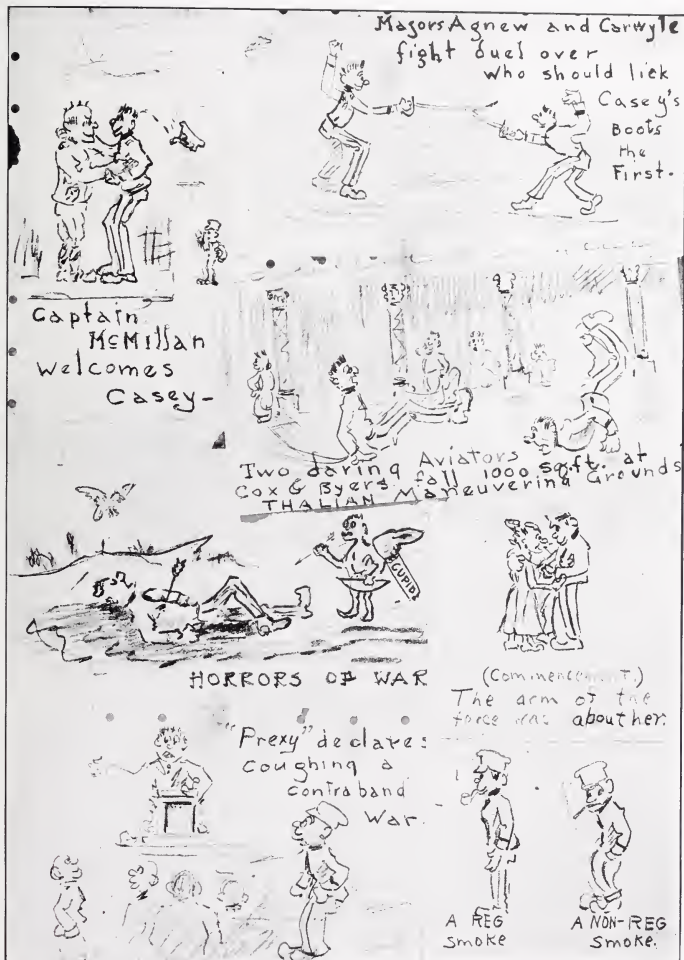 Majors Agnew and Carwyle
fight duel over
who should lick
Casey's
Boots
the
First.
Captain
McMillan
welcomes
Casey-
Two daring Aviators
Cox & Byers fall 1000 sq.ft. at
THALIAN Maneuvering Grounds
CUPID
HORRORS OF WAR
(Commencement.)
The arm of the
force was about her.
"Prexy" declares
coughing a
contraband
War.
A REG
smoke
A NON-REG
smoke.